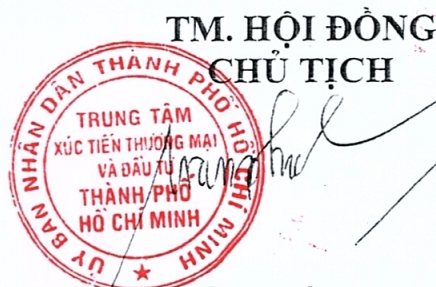 TM. HỘI ĐỒNG
CHỦ TỊCH
ỦY BAN NHÂN DÂN THÀNH PHỐ HỒ CHÍ MINH
TRUNG TÂM
XÚC TIẾN THƯƠNG MẠI
VÀ ĐẦU TƯ
THÀNH PHỐ
HỒ CHÍ MINH